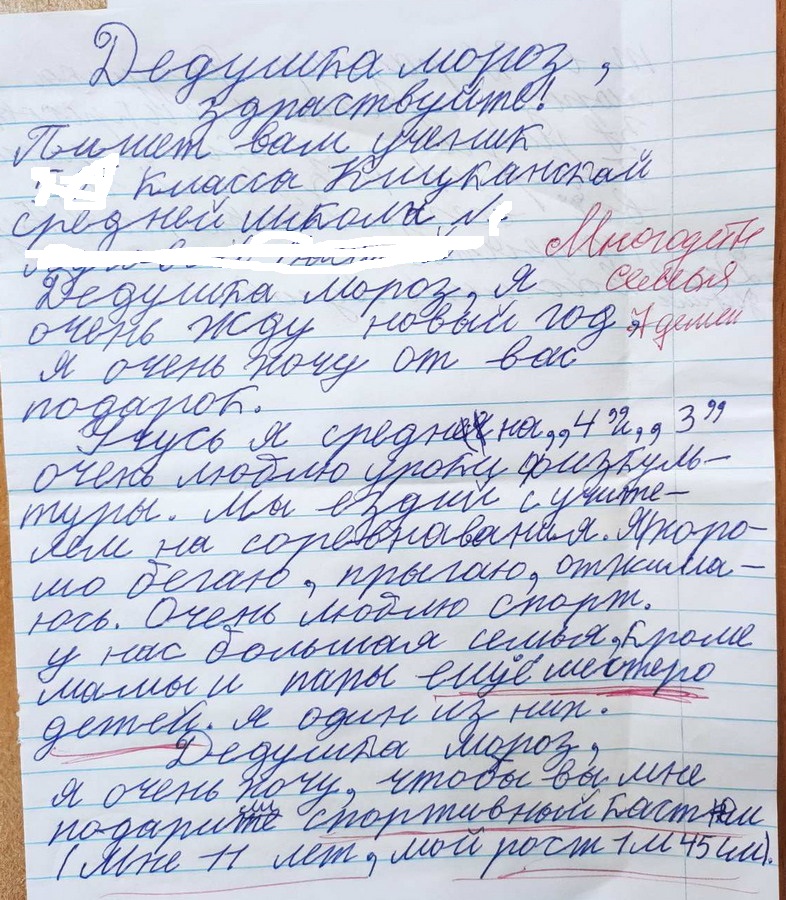 Дедушка мороз,
здраствуйте!
Пишет вам ученик
класса Кицканской
средней школы №
Дедушка мороз, я
Многодетн
семья
очень жду новый год,
7 детей
я очень хочу от вас
подарок.
Учусь я средн на „4” и „3”
очень люблю уроки физкуль-
туры. Мы ездий с учите-
лем на соревнавания. Я хоро-
шо бегаю, прыгаю, отжима-
юсь. Очень люблю спорт.
у нас большая семья, кроме
мамы и папы ещё шестеро
детей. я один из них.
Дедушка мороз,
я очень хочу, чтобы вы мне
подарили спортивный кастюм
(Мне 11 лет, мой рост 1 м 45 см).